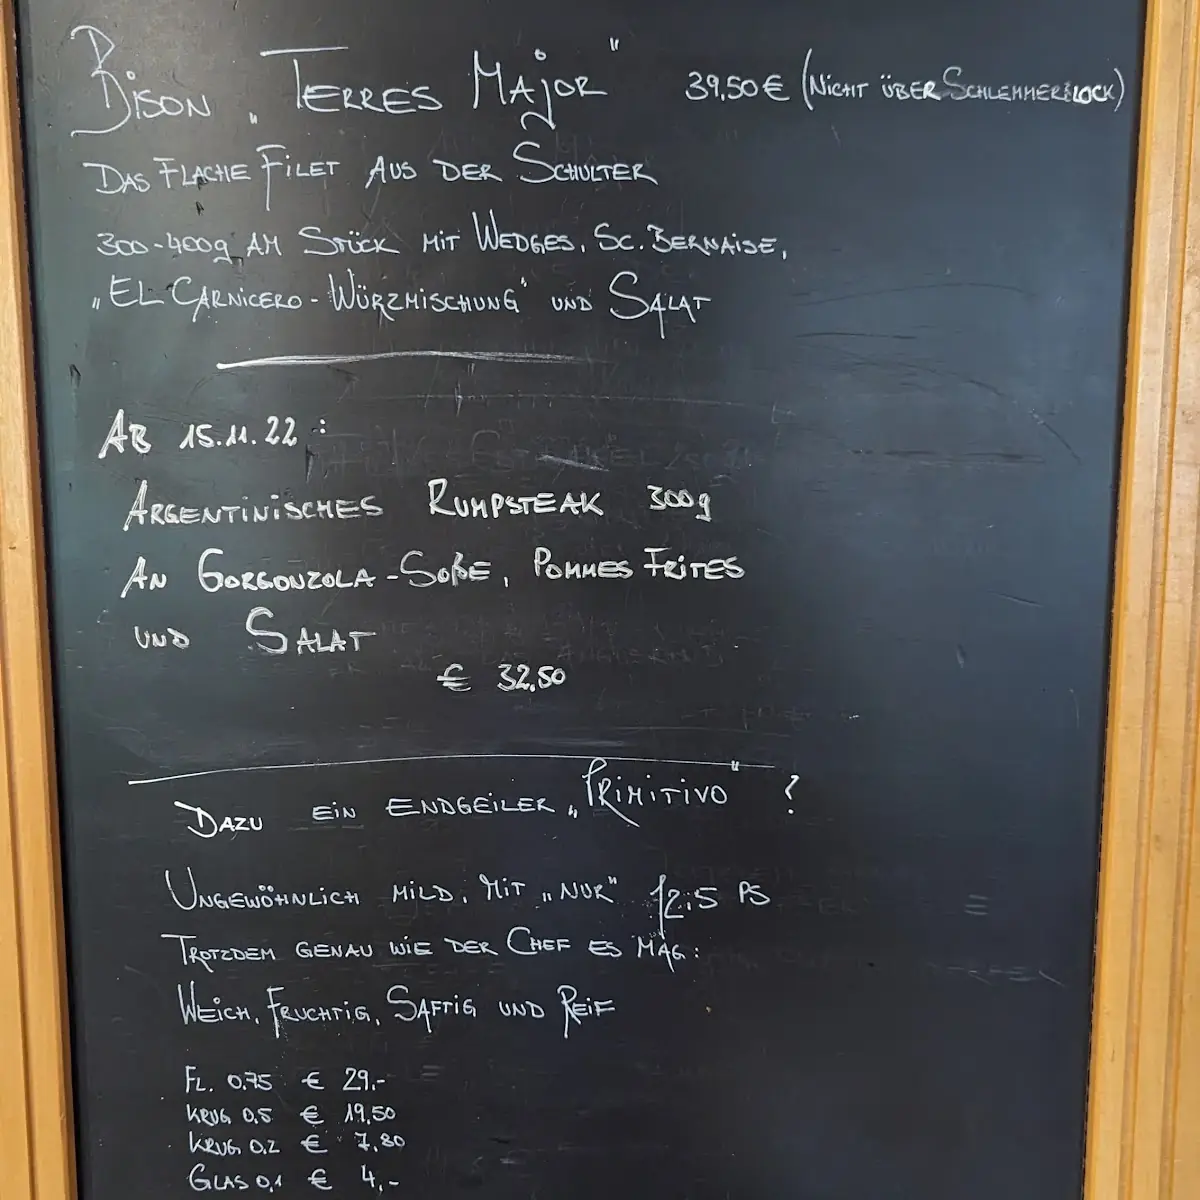 BISON „TERRES MAJOR" 39,50 € (NICHT ÜBER SCHLEMMERBLOCK)
DAS FLACHE FILET AUS DER SCHULTER
300-400g AM STÜCK MIT WEDGES, SC. BERNAISE,
„EL CARNICERO-WÜRZMISCHUNG" UND SALAT
AB 15.11.22:
ARGENTINISCHES RUMPSTEAK 300g
AN GORGONZOLA-SOßE, POMMES FRITES
UND SALAT
€ 32,50
DAZU EIN ENDGEILER „PRIMITIVO" ?
UNGEWÖHNLICH MILD, MIT „NUR" 12,5 PS
TROTZDEM GENAU WIE DER CHEF ES MAG:
WEICH, FRUCHTIG, SAFTIG UND REIF
FL. 0,75 € 29,-
KRUG 0,5 € 19,50
KRUG 0,2 € 7,80
GLAS 0,1 € 4,-